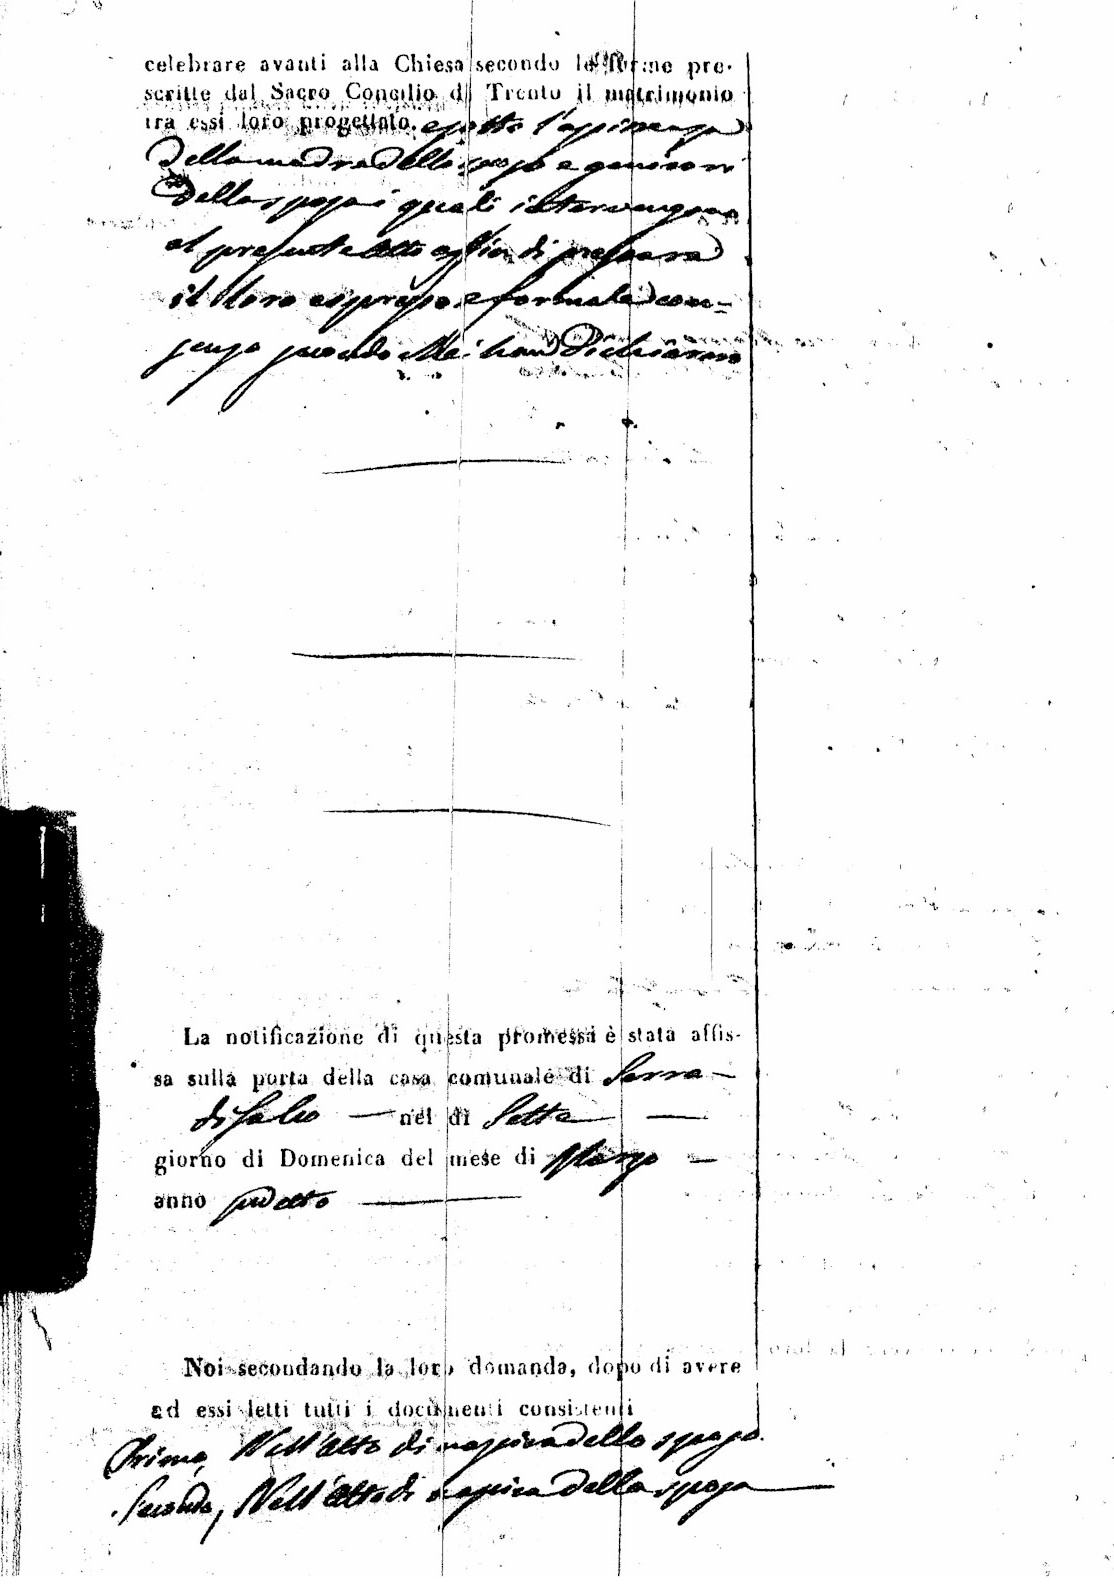 celebrare avanti alla Chiesa secondo le forme pre-
scritte dal Sacro Concilio di Trento il matrimonio
tra essi loro progettato. l'assistenza
della madre dello sposo e genitori
della sposa i quali intervengono
al presente atto affin di prestare
il loro espresso e formale con=
senso han dichiarato
La notificazione di questa promessa è stata affis-
sa sulla porta della casa comunale di Serra
di Falco nel dì Sette
giorno di Domenica del mese di Marzo
anno sudetto
Noi secondando la loro domanda, dopo di avere
ad essi letti tutti i documenti consistenti
Primo, Nell'atto di nascita dello sposo.
Secondo, Nell'atto di nascita della sposa